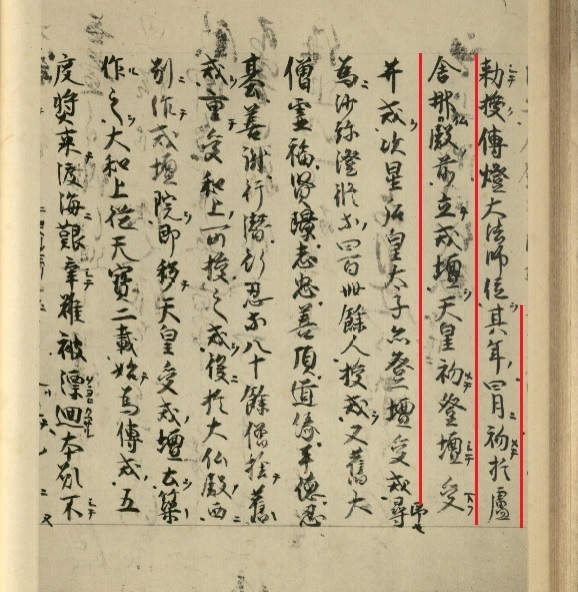 勅授傳燈大法師位其年四月初於盧
舎那殿前立戒壇天皇初登壇受
菩薩戒次皇后皇太子亦登壇受戒尋
為沙弥澄修等四百卌餘人授戒又舊大
僧霊福賢璟志忠善頂道縁平徳忍
基善謝行潜行忍等八十餘僧捨舊
戒重受和上所授之戒後於大仏殿西
別作戒壇院即移天皇受戒壇土築
作之大和上従天寶二載始為傳戒五
度装束渡海艱辛雖被漂迴本願不